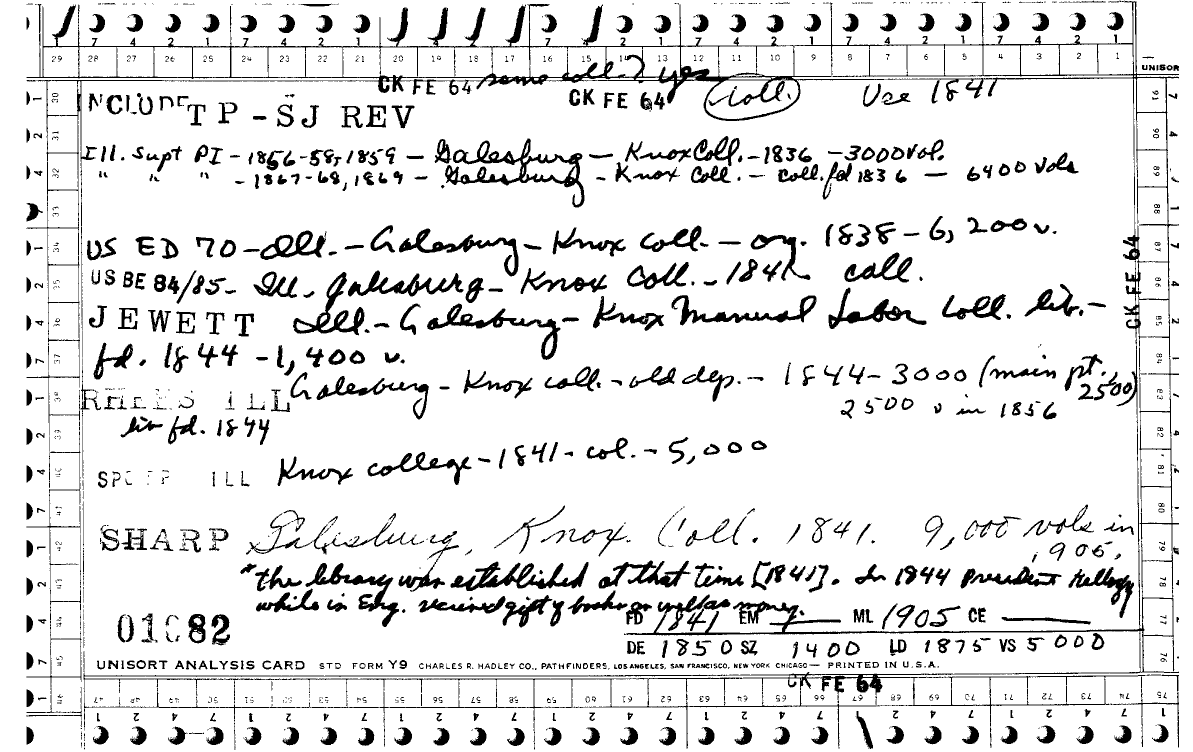 CK FE 64 same coll? yes
CK FE 64 Coll. Use 1841
INCLUDE TP - SJ REV
Ill. Supt PI - 1856-58, 1859 - Galesburg - Knox Coll. - 1836 - 3000 vol.
" " " - 1867-68, 1869 - Galesburg - Knox Coll. - Coll. fd 1836 - 6400 vols
US ED 70 - Ill. - Galesburg - Knox Coll. - org. 1838 - 6,200 v.
US BE 84/85 - Ill. Galesburg - Knox Coll. - 1841 - coll.
CK FE 64
JEWETT Ill. - Galesburg - Knox Manual Labor Coll. lib. -
fd. 1844 - 1,400 v.
RHEES ILL Galesburg - Knox coll. - old dep. - 1844 - 3000 (main pt., 2500)
2500 v in 1856
lib fd. 1844
ILL Knox college - 1841 - col. - 5,000
SHARP Galesburg, Knox. Coll. 1841. 9,000 vols in
1905.
"the library was established at that time [1841]. In 1844 President Kellogg
while in Eng. received gift of books as well as money.
01082
FD 1841 EM ML 1905 CE
DE 1850 SZ 1400 LD 1875 VS 5000
UNISORT ANALYSIS CARD STD FORM Y9 CHARLES R. HADLEY CO., PATHFINDERS, LOS ANGELES, SAN FRANCISCO, NEW YORK CHICAGO — PRINTED IN U.S.A.
CK FE 64